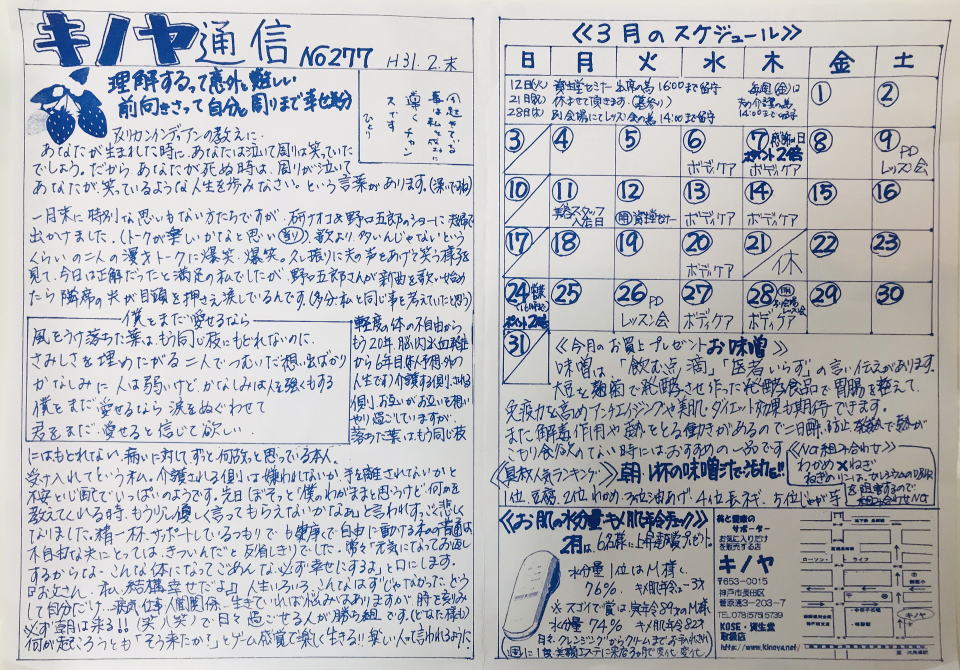 キノヤ通信 NO277 H31.2.末
理解するって意外と難しい
前向きさって自分も周りまで幸せ気分
今起きている
事は私を成功に
導くチャン
スです
ひとり
アメリカンインディアンの教えに.
あなたが生まれた時に.あなたは泣いて周りは笑っていた
でしょう。だからあなたが死ぬ時は、周りが泣いて
あなたが笑っているような人生を歩みなさい。という言葉があります。(深いですね)
一月末に特別な思いもない方たちですが.研ナオコ&野口五郎のショーに夫婦で
出かけました.(トークが楽しいかなと思い
歌より.多いんじゃないという
くらいの二人の漫才トークに爆笑.爆笑。久し振りに夫の声をあげて笑う様子を
見て、今日は正解だったと満足の私でしたが.野口五郎さんが新曲を歌い始め
たら隣席の夫が目頭を押さえ涙しているんです。(多分私と同じ事を考えていたと思う)
僕をまだ愛せるなら
風をうけ落ちた葉は、もう同じ枝にもどれないのに.
さみしさを埋めたがる二人でつむいだ想い出ばかり
かなしみに人は弱いけど.かなしみは人を強くもする
僕をまだ愛せるなら涙をぬぐわせて
君をまだ.愛せると信じて欲しい
軽度の体の不自由から.
もう20年.脳内出血発症
から6年目(本人予想外の
人生です)介護する側.される
側.お互いがお互いを想い
やり過ごしていますが.
落ちた葉は、もう同じ枝
にはもどれない.病いに対してずっと何故と思っている本人.
受け入れてという私。介護される側は嫌われないか.手を離されないかと
不安と心配でいっぱいのようです。先日ぼそっと「僕のわがままと思うけど.何かを
教えてくれる時、もう少し優しく言ってもらえないかなぁ」と言われ.すっと悲しく
なりました。精一杯.サポートしているつもりでも健康で自由に動ける私の普通が
不自由な夫にとっては、きついんだと反省しきりでした。常々「元気になってお返し
するからな…こんな体になってごめんな.必ず幸せにするな」と口にします。
『お父さん.私、結構幸せだよ』人生いろいろ.こんなはずじゃなかった.どう
して自分だけ…病気.仕事.人間関係…生きていればいろいろ悩みありますが.時を刻み
必ず朝は来る!!(笑)(笑)で日々過ごせる人が勝ち組です。(どなた様も)
何が起ころうとも「そう来たか?」とゲーム感覚で楽しく生きる!!楽しい人って言われるように!
≪3月のスケジュール≫
日 月 火 水 木 金 土
12日(火) 資生堂セミナー出席の為 16:00まで留守
21日(祝) 休ませて頂きます.(墓参り)
28日(木) 別会場にてレッスン会の為 14:00まで留守
毎週(金)は
夫の介護の為
14:00まで留守
1 2
3 4 5 6 ボディケア 7 感謝の日 ポイント2倍 ボディケア 8 9 PD レッスン会
10 11 美容スタッフ 入店日 12 資生堂セミナー 13 ボディケア 14 ボディケア 15 16
17 18 19 20 ボディケア 21 休 22 23
24 営業 ポイント2倍 25 26 PD レッスン会 27 ボディケア 28 別会場 レッスン会 ボディケア 29 30
31
≪今月のお買上プレゼント お味噌≫
味噌は、「飲む点滴」「医者いらず」の言い伝えがあります。
大豆と麹菌で発酵させ作った発酵食品で胃腸を整えて、
免疫力を高めアンチエイジングや美肌.ダイエット効果も期待できます。
また解毒作用や熱をとる働きがあるので二日酔い防止.発熱で熱が
こもり食欲のない時にはおすすめの一品です
≪具材人気ランキング≫ 朝1杯の味噌汁で活力を!!
1位.豆腐.2位わかめ.3位油あげ.4位長ネギ.5位じゃが芋
≪NG組み合わせ≫
わかめ×ねぎ
ねぎのリンは、カルシウムの吸収
を阻害するので
組み合わせNG
≪お肌の水分量・キメ肌年令チェック≫
2月は、6名様に上昇率賞プレゼント
水分量1位はM様
76% キメ肌年令は-3才
※スゴイで賞は実年令89才のM様
水分量74% キメ肌年令82才
日々.クレンジングからクリームまでお手入れされ
に1度.美顔エステに来店3ヶ月で変化.変化
美と健康の
サポーター
お気に入りだけ
を販売する店
キノヤ
〒653-0015
神戸市長田区
菅原通3-203-7
TEL.078(575)5739
KOSE・資生堂
取扱店
http://www.kinoya.net/
ローソン
ライフ
キノヤ